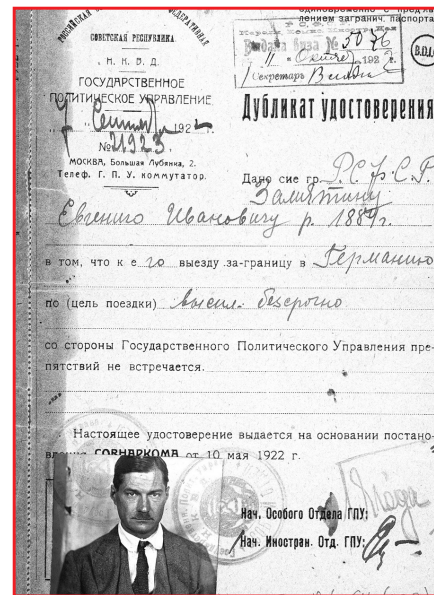 РОССИЙСКАЯ ФЕДЕРАТИВНАЯ
СОВЕТСКАЯ РЕСПУБЛИКА.
Н. К. В. Д.
ГОСУДАРСТВЕННОЕ
ПОЛИТИЧЕСКОЕ УПРАВЛЕНИЕ
192 2 г.
№ 21923
МОСКВА, Большая Лубянка, 2.
Телеф. Г. П. У. коммутатор.
одновременно с предъяв
лением загранич. паспорта
виза № 5076
11 192 г.
Секретарь
Дубликат удостоверения
Дано сие гр. Р.С.Ф.С.Р.
Замятину
Евгению Ивановичу р. 1884 г.
в том, что к его выезду за-границу в Германию
по (цель поездки) высыл. безсрочно
со стороны Государственного Политического Управления пре-
пятствий не встречается.
Настоящее удостоверение выдается на основании постано-
вления СОВНАРКОМА от 10 мая 1922 г.
Нач. Особого Отдела ГПУ:
Нач. Иностран. Отд. ГПУ: